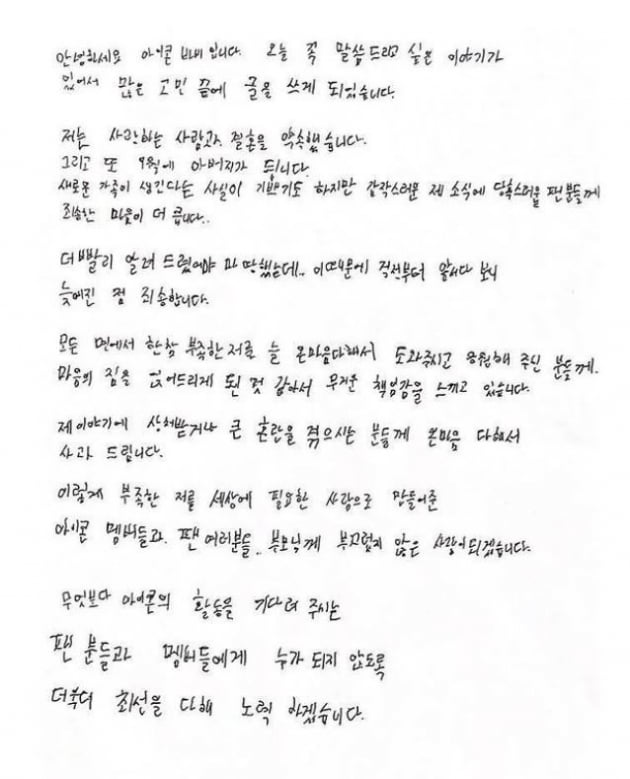 안녕하세요 아이콘 바비 입니다. 오늘 꼭 말씀드리고 싶은 이야기가
있어서 많은 고민 끝에 글을 쓰게 되었습니다.
저는 사랑하는 사람과 결혼을 약속했습니다.
그리고 또 9월에 아버지가 됩니다
새로운 가족이 생긴다는 사실이 기쁘기도 하지만 갑작스러운 제 소식에 당혹스러울 팬분들께
죄송한 마음이 더 큽니다..
더 빨리 알려 드렸어야 마땅했는데.. 이 때문에 걱정부터 앞서다 보니
늦어진 점 죄송합니다.
모든 면에서 한참 부족한 저를 늘 온마음다해서 도와주시고 응원해 주신 분들께.
마음의 짐을 얹어드리게 된 것 같아서 무거운 책임감을 느끼고 있습니다.
제 이야기에 상처받거나 큰 혼란을 겪으시는 분들께 온마음 다해서
사과 드립니다.
이렇게 부족한 저를 세상에 필요한 사람으로 만들어준
아이콘 멤버들과. 팬 여러분들.. 부모님께 부끄럽지 않은 사람이되겠습니다.
무엇보다 아이콘의 활동을 기다려 주시는
팬 분들과 멤버들에게 누가 되지 않도록
더욱더 최선을 다해 노력 하겠습니다.